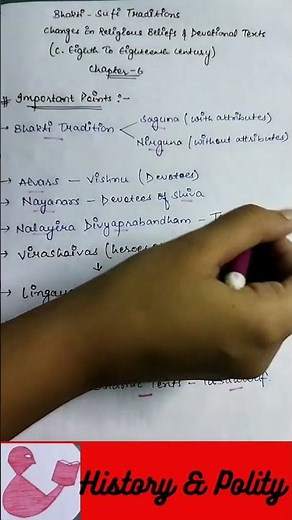 Bhakti - Sufi Traditions
Changes in Religious Beliefs & Devotional Texts
(C. Eighth To Eighteenth Century)
Chapter-6
# Important Points :-
→ Bhakti Tradition < Saguna (with attributes)
Nirguna (without attributes)
→ Alvars — Vishnu (Devotees)
→ Nayanars - Devotees of Shiva
→ Nalayira Divyaprabandham - T
→ Virashaivas (heroes
↓
→ Lingaya
Texts - Tasawwuf.
History & Polity